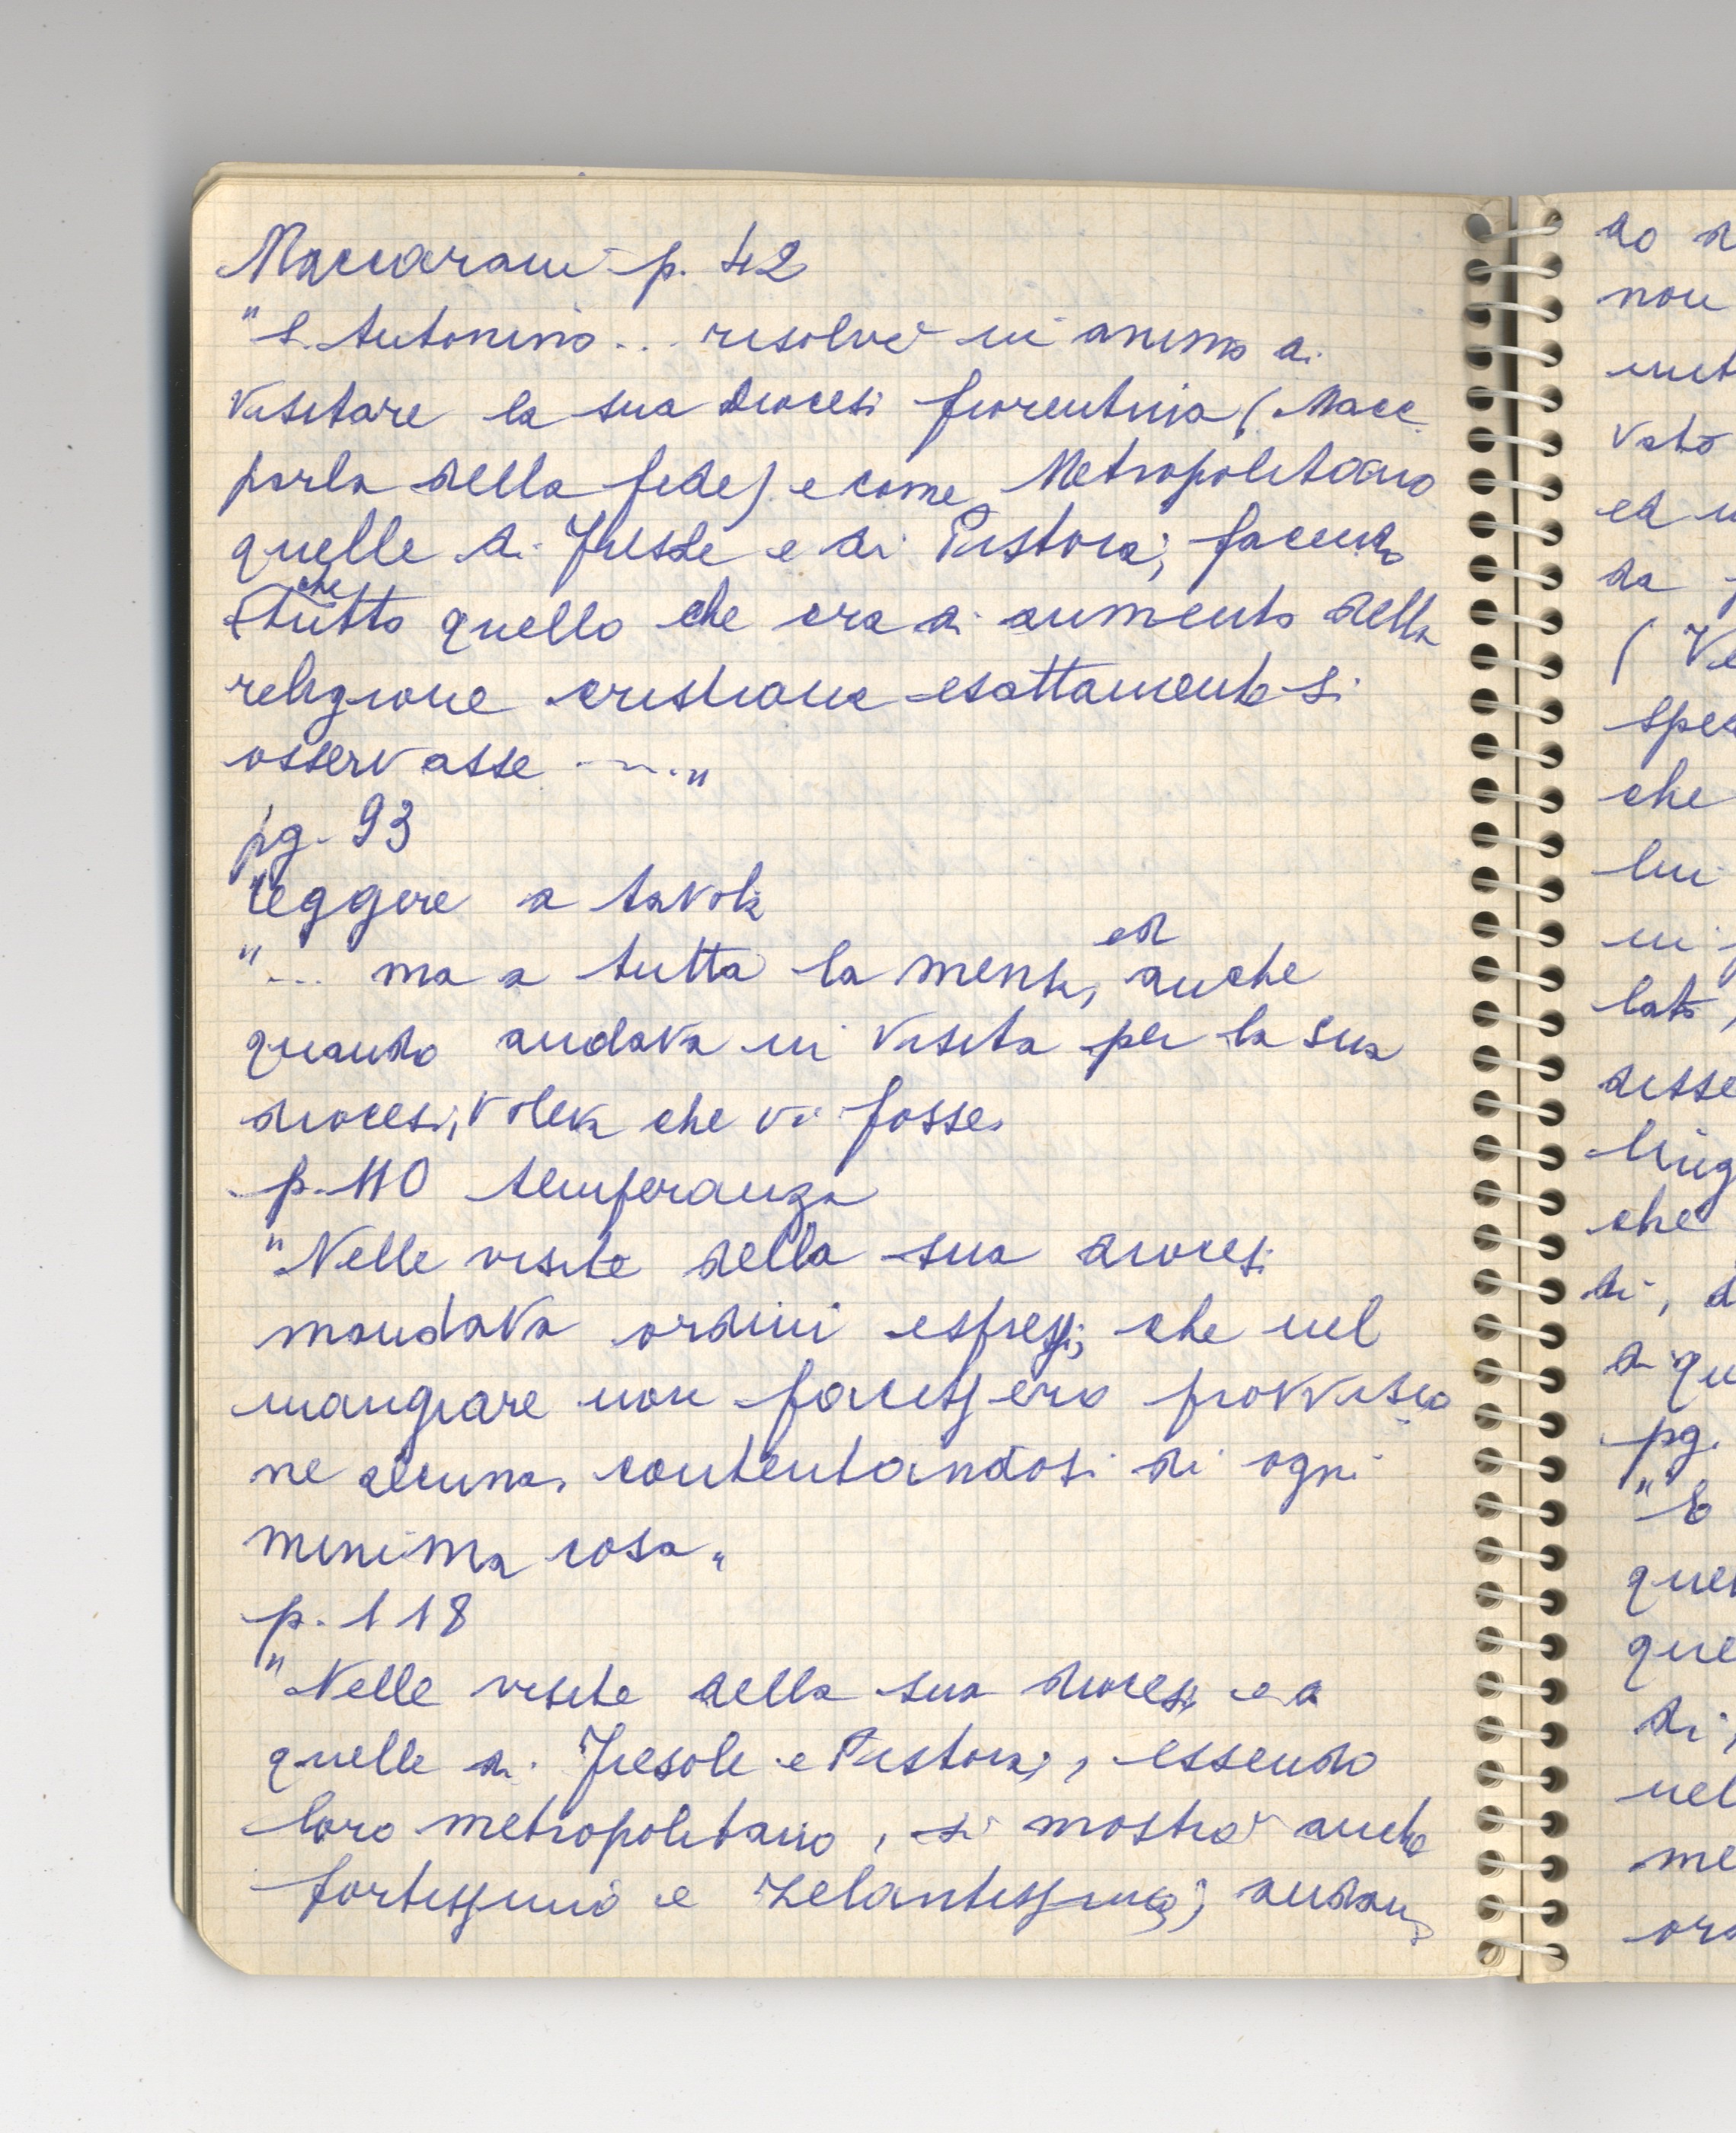 Maccarani p. 42
"S. Antonino... risolvé in animo di
visitare la sua diocesi fiorentina (Macc.
parla della fede) e come Metropolitano
quelle di Fiesole e di Pistoia; facendo
che
tutto quello che era di aumento della
religione cristiana esattamente si
osservasse ....."
pg. 93
leggere a tavola
ed
"... ma a tutta la mensa, anche
quando andava in visita per la sua
diocesi, voleva che vi fosse.
p. 110 temperanza
"Nelle visite della sua diocesi
mandava ordini espressi, che nel
mangiare non facessero provvisio
ne alcuna, contentandosi di ogni
minima cosa"
p. 118
"Nelle visite della sua diocesi e a
quelle di Fiesole e Pistoia, essendo
loro metropolitano, si mostrò anche
fortissimo e zelantissimo; andan
do
non
vato
ed
da
( Ve
spes
che
lui
in
lato,
disse
ling
che
di,
di qu
pg.
"E
que
que
di
nel
me